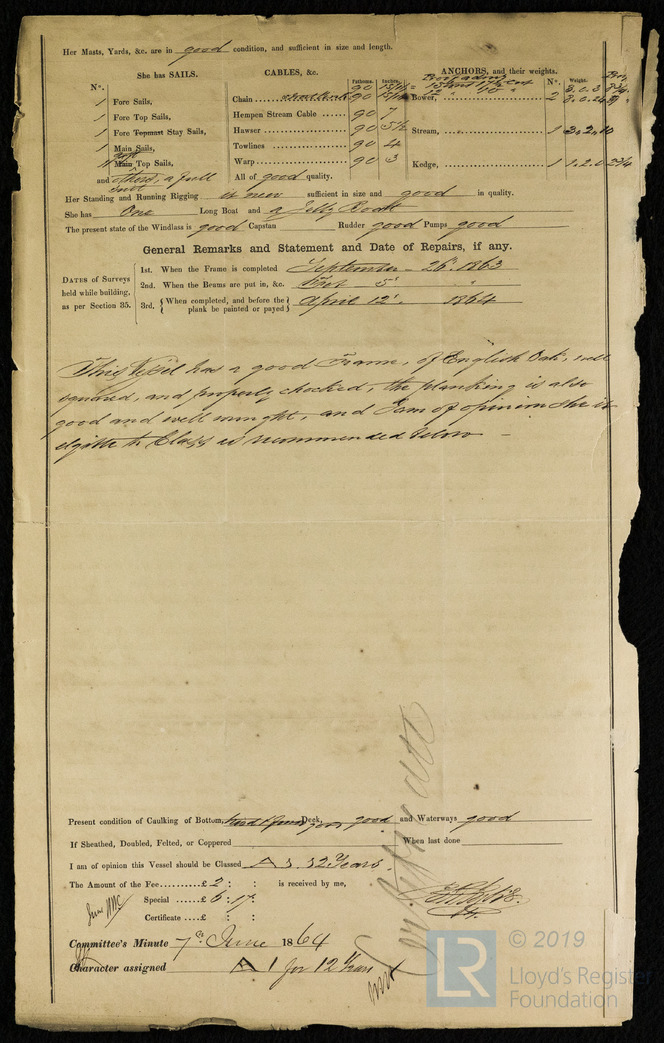 Her Masts, Yards, &c. are in good condition, and sufficient in size and length.
She has SAILS.
CABLES, &c.
ANCHORS, and their weights.
N°.
Fathoms.
Inches.
N°.
Weight.
1 Fore Sails,
Chain
90
Bower,
2
3.0.3
1 Fore Top Sails,
Hempen Stream Cable 90 7
1 Fore Topmast Stay Sails,
Hawser 90 5½
Stream, 1
1 Main Sails,
Towlines 90 4
Main Top Sails,
Warp 90 3
Kedge, 1 1.2.0
and others a full suit
All of good quality.
Her Standing and Running Rigging is new sufficient in size and good in quality.
She has One Long Boat and a Jolly Boat
The present state of the Windlass is good Capstan Rudder good Pumps good
General Remarks and Statement and Date of Repairs, if any.
DATES of Surveys held while building, as per Section 35.
1st. When the Frame is completed September 26th 1863
2nd. When the Beams are put in, &c. 5th
3rd. { When completed, and before the plank be painted or payed } April 12th 1864
This Vessel has a good Frame, of English Oak, well
squared, and properly chocked, the planking is also
good and well wrought, and I am of opinion she is
eligible to Class as recommended below
Present condition of Caulking of Bottom, Deck, good and Waterways good
If Sheathed, Doubled, Felted, or Coppered When last done
I am of opinion this Vessel should be Classed A 1 12 Years
The Amount of the Fee..........£ 2 : : is received by me,
Special ......£ 6 : 17 :
Certificate ....£ : :
Committee's Minute 7th June 1864
Character assigned A 1 for 12 Years
LR
© 2019
Lloyd's Register
Foundation